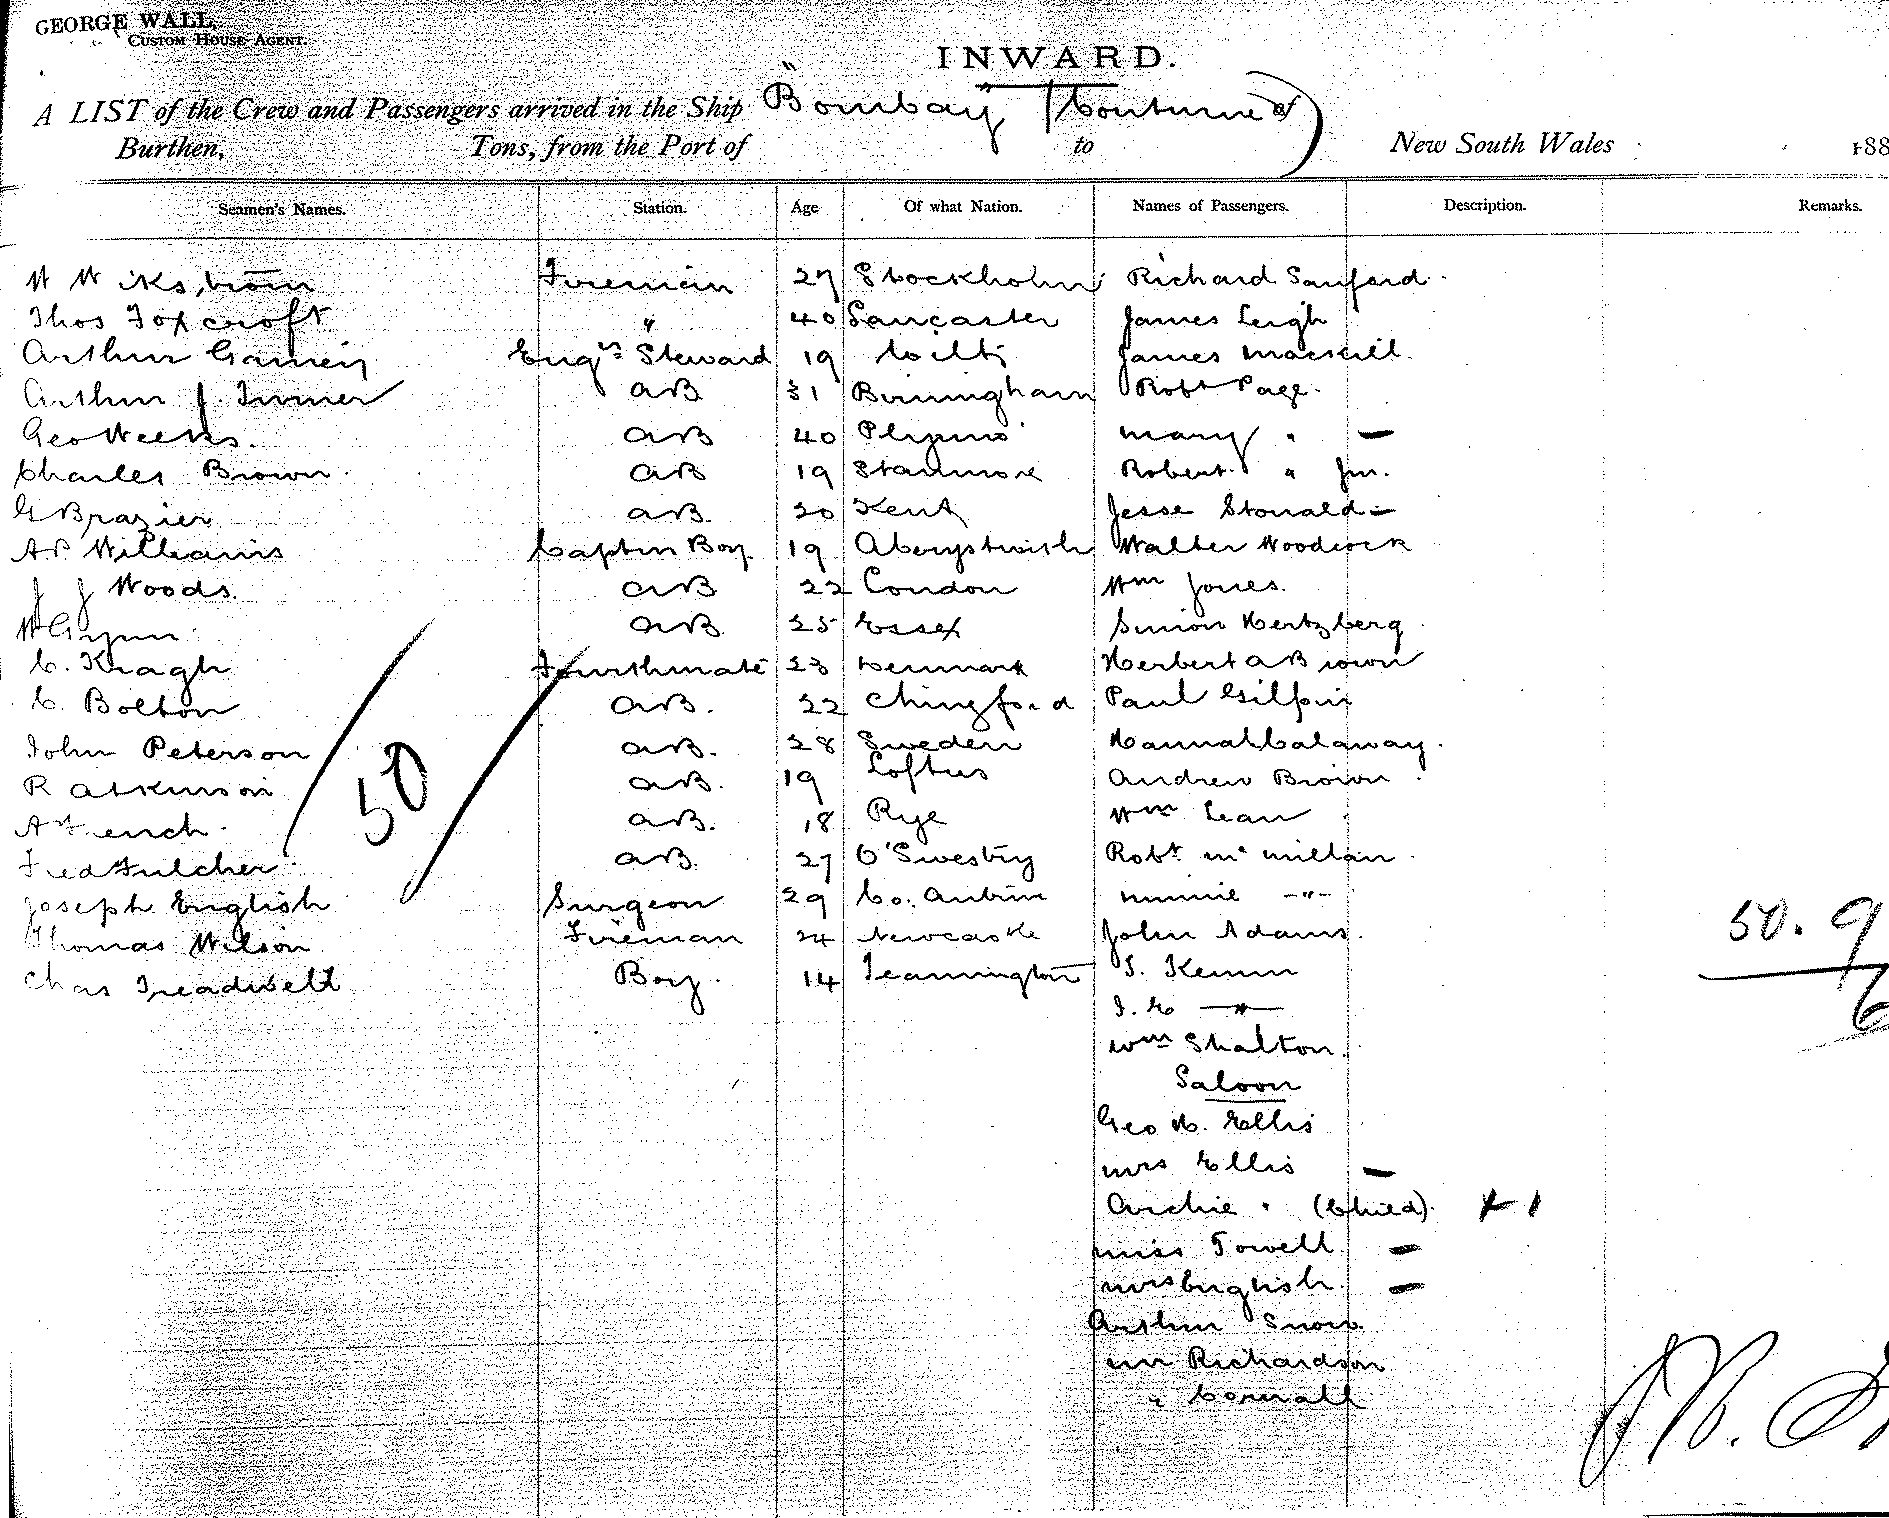 GEORGE WALL,
CUSTOM HOUSE AGENT.
INWARD.
A LIST of the Crew and Passengers arrived in the Ship "Bombay" (Continued)
Burthen, Tons, from the Port of to New South Wales 188
Seamen's Names. Station. Age Of what Nation. Names of Passengers. Description. Remarks.
W Wikstrom Fireman 27 Stockholm Richard Sanford
Thos Foxcroft " 40 Lancaster James Leigh
Arthur Engrs Steward 19 Wilts James
Arthur J. Turner AB 31 Birmingham Robt Page
Geo Weeks. AB 40 Plymo Mary " —
Charles Brown. AB 19 Stanmore Robert " Jun.
G Brazier AB 20 Kent Jesse Stonald —
Williams Captn Boy 19 Aberystwith Walter Woodcock
J J Woods. AB 22 London Wm Jones.
W Glynn AB 25 Essex Simon Hertzberg
C. Kragh Fourthmate 23 Denmark Herbert A Brown
C. Bolton AB. 22 Chingford Paul Gilpin
John Peterson AB. 28 Sweden Hannah Calaway.
R Atkinson AB. 19 Loftus Andrew Brown
AB. 18 Rye Wm Lean
50
Fred Fulcher AB. 27 O'Swestry Robt McMillan
Joseph English Surgeon 29 Co. Antrim Minnie —"—
Thomas Wilson Fireman 24 Newcastle John Adams.
50. 9
Chas Treadwell Boy. 14 Leamington T. Kemm
6
J. E —"—
Wm Shalton.
Saloon
Geo H. Ellis
Mrs Ellis —
Archie " (Child). + 1
Miss Towell —
Mrs English —
Arthur Snow
Mr Richardson
" Cornall